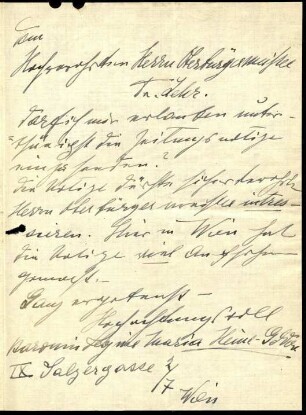 Dem
Hochverehrten Herrn Oberbürgermeister
Darf ich mir erlauben unter-
thänigst die Zeitungsnotize
einzusenden?
die Notize dürfte
Herrn Oberbürgermeister intres-
sieren. Hier in Wien hat
die Notize viel Aufsehen
gemacht.
Ganz ergebenst
Hochachtungsvoll
Baronin Maria Heine-
IX Salzergasse
7 Wien